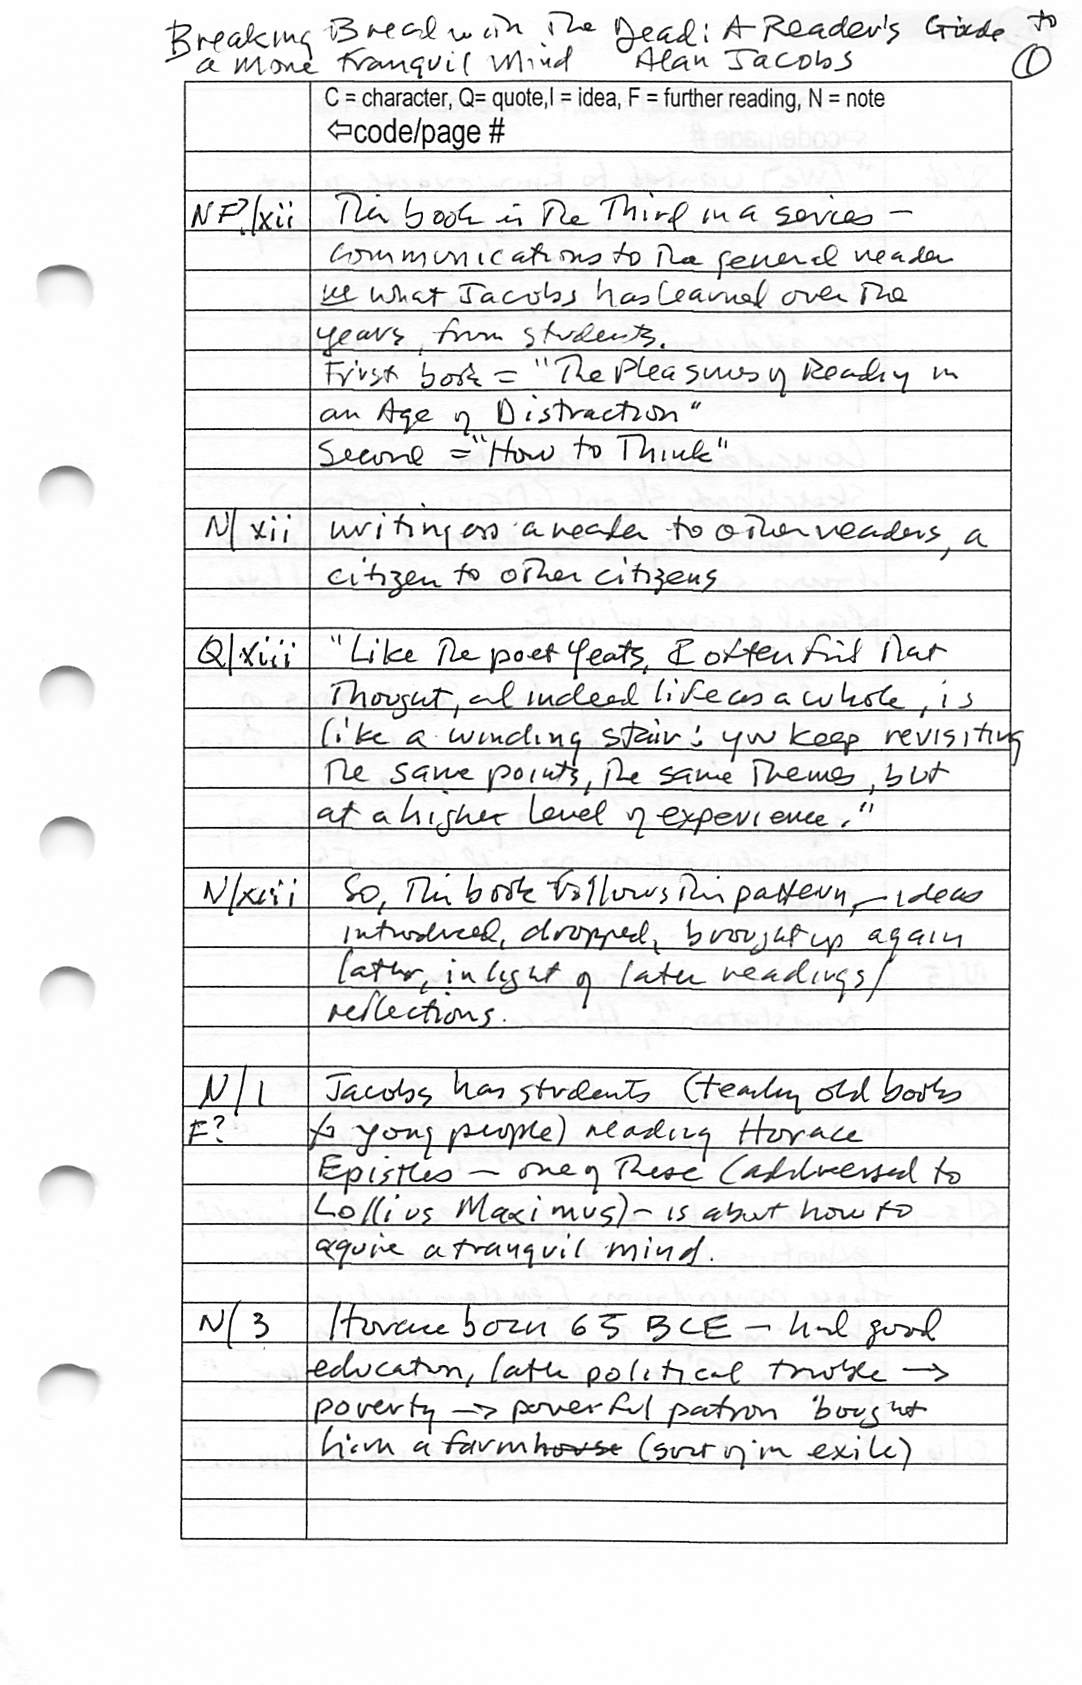 Breaking Bread with The Dead: A Reader's Guide to
a more Tranquil Mind Alan Jacobs ①
C = character, Q= quote,I = idea, F = further reading, N = note
⇦code/page #
NF?/xii This book is The Third in a series –
communications to The general reader
re what Jacobs has learned over The
years, from students.
First book = "The Pleasures of Reading in
an Age of Distraction"
Second = "How to Think"
N/xii writing as a reader to other readers, a
citizen to other citizens
Q/xiii "Like The poet Yeats, I often find That
Thought, and indeed life as a whole, is
like a winding stair: you keep revisiting
The same points, The same Themes, but
at a higher level of experience."
N/xiii So, This book follows This pattern, – ideas
introduced, dropped, brought up again
later, in light of later readings/
reflections.
N/1 Jacobs has students (teaching old books
F? to young people) reading Horace
Epistles – one of These (addressed to
Lollius Maximus) – is about how to
aquire a tranquil mind.
N/3 Horace born 65 BCE – had good
education, later political trouble →
poverty → powerful patron bought
him a farmhouse (sort of in exile)